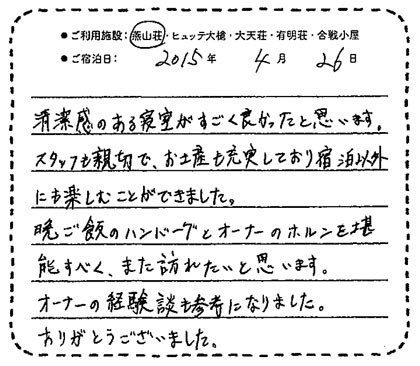 ●ご利用施設：燕山荘・ヒュッテ大槍・大天荘・有明荘・合戦小屋
●ご宿泊日： 2015年 4月 26日
清潔感のある寝室がすごく良かったと思います。
スタッフも親切で、お土産も充実しており宿泊以外
にも楽しむことができました。
晩ご飯のハンバーグとオーナーのホルンを堪
能すべく、また訪れたいと思います。
オーナーの経験談も参考になりました。
ありがとうございました。